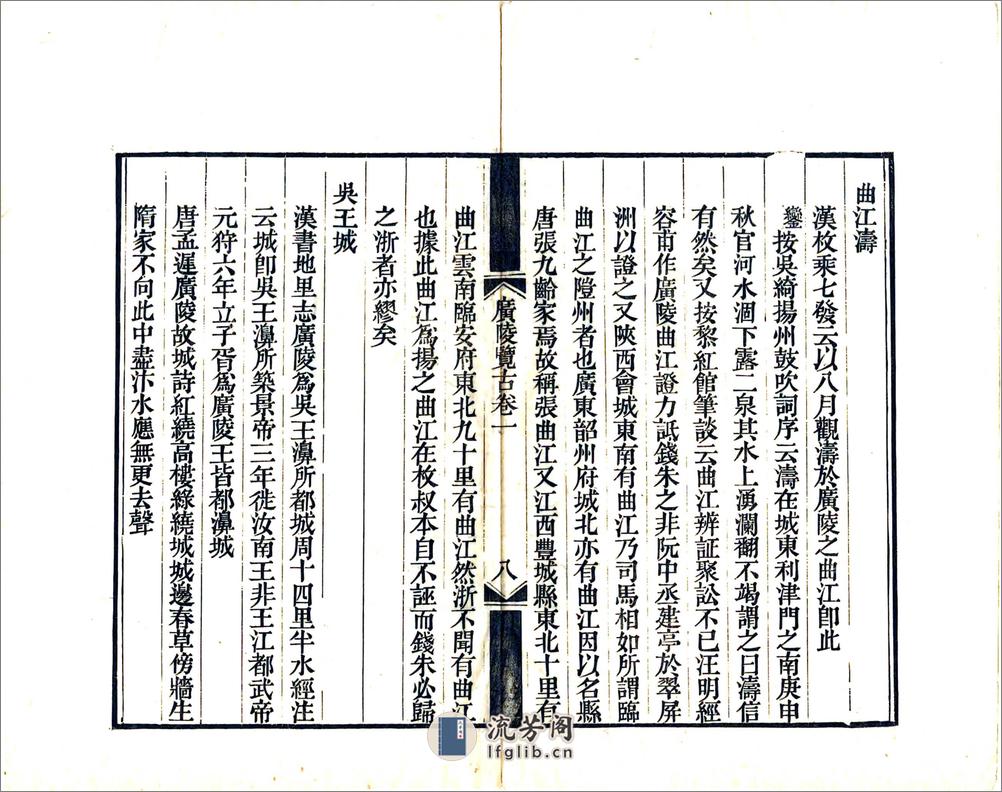 曲江濤
漢枚乘七發云以八月觀濤於廣陵之曲江卽此
鑾按吳綺揚州鼓吹詞序云濤在城東利津門之南庚申
秋官河水涸下露二泉其水上湧瀾翻不竭謂之曰濤信
有然矣又按黎紅館筆談云曲江辨証聚訟不已汪明經
容甫作廣陵曲江證力詆錢朱之非阮中丞建亭於翠屏
洲以證之又陝西會城東南有曲江乃司馬相如所謂臨
曲江之隑州者也廣東韶州府城北亦有曲江因以名縣
唐張九齡家焉故稱張曲江又江西豐城縣東北十里有
廣陵覽古卷一
八
曲江雲南臨安府東北九十里有曲江然浙不聞有曲江
也據此曲江爲揚之曲江在枚叔本自不誣而錢朱必歸
之浙者亦繆矣
吳王城
漢書地里志廣陵爲吳王濞所都城周十四里半水經注
云城卽吳王濞所築景帝三年徙汝南王非王江都武帝
元狩六年立子胥爲廣陵王皆都濞城
唐孟遲廣陵故城詩紅繞高樓綠繞城城邊春草傍牆生
隋家不向此中盡汴水應無更去聲
流芳阁
lfglib.cn